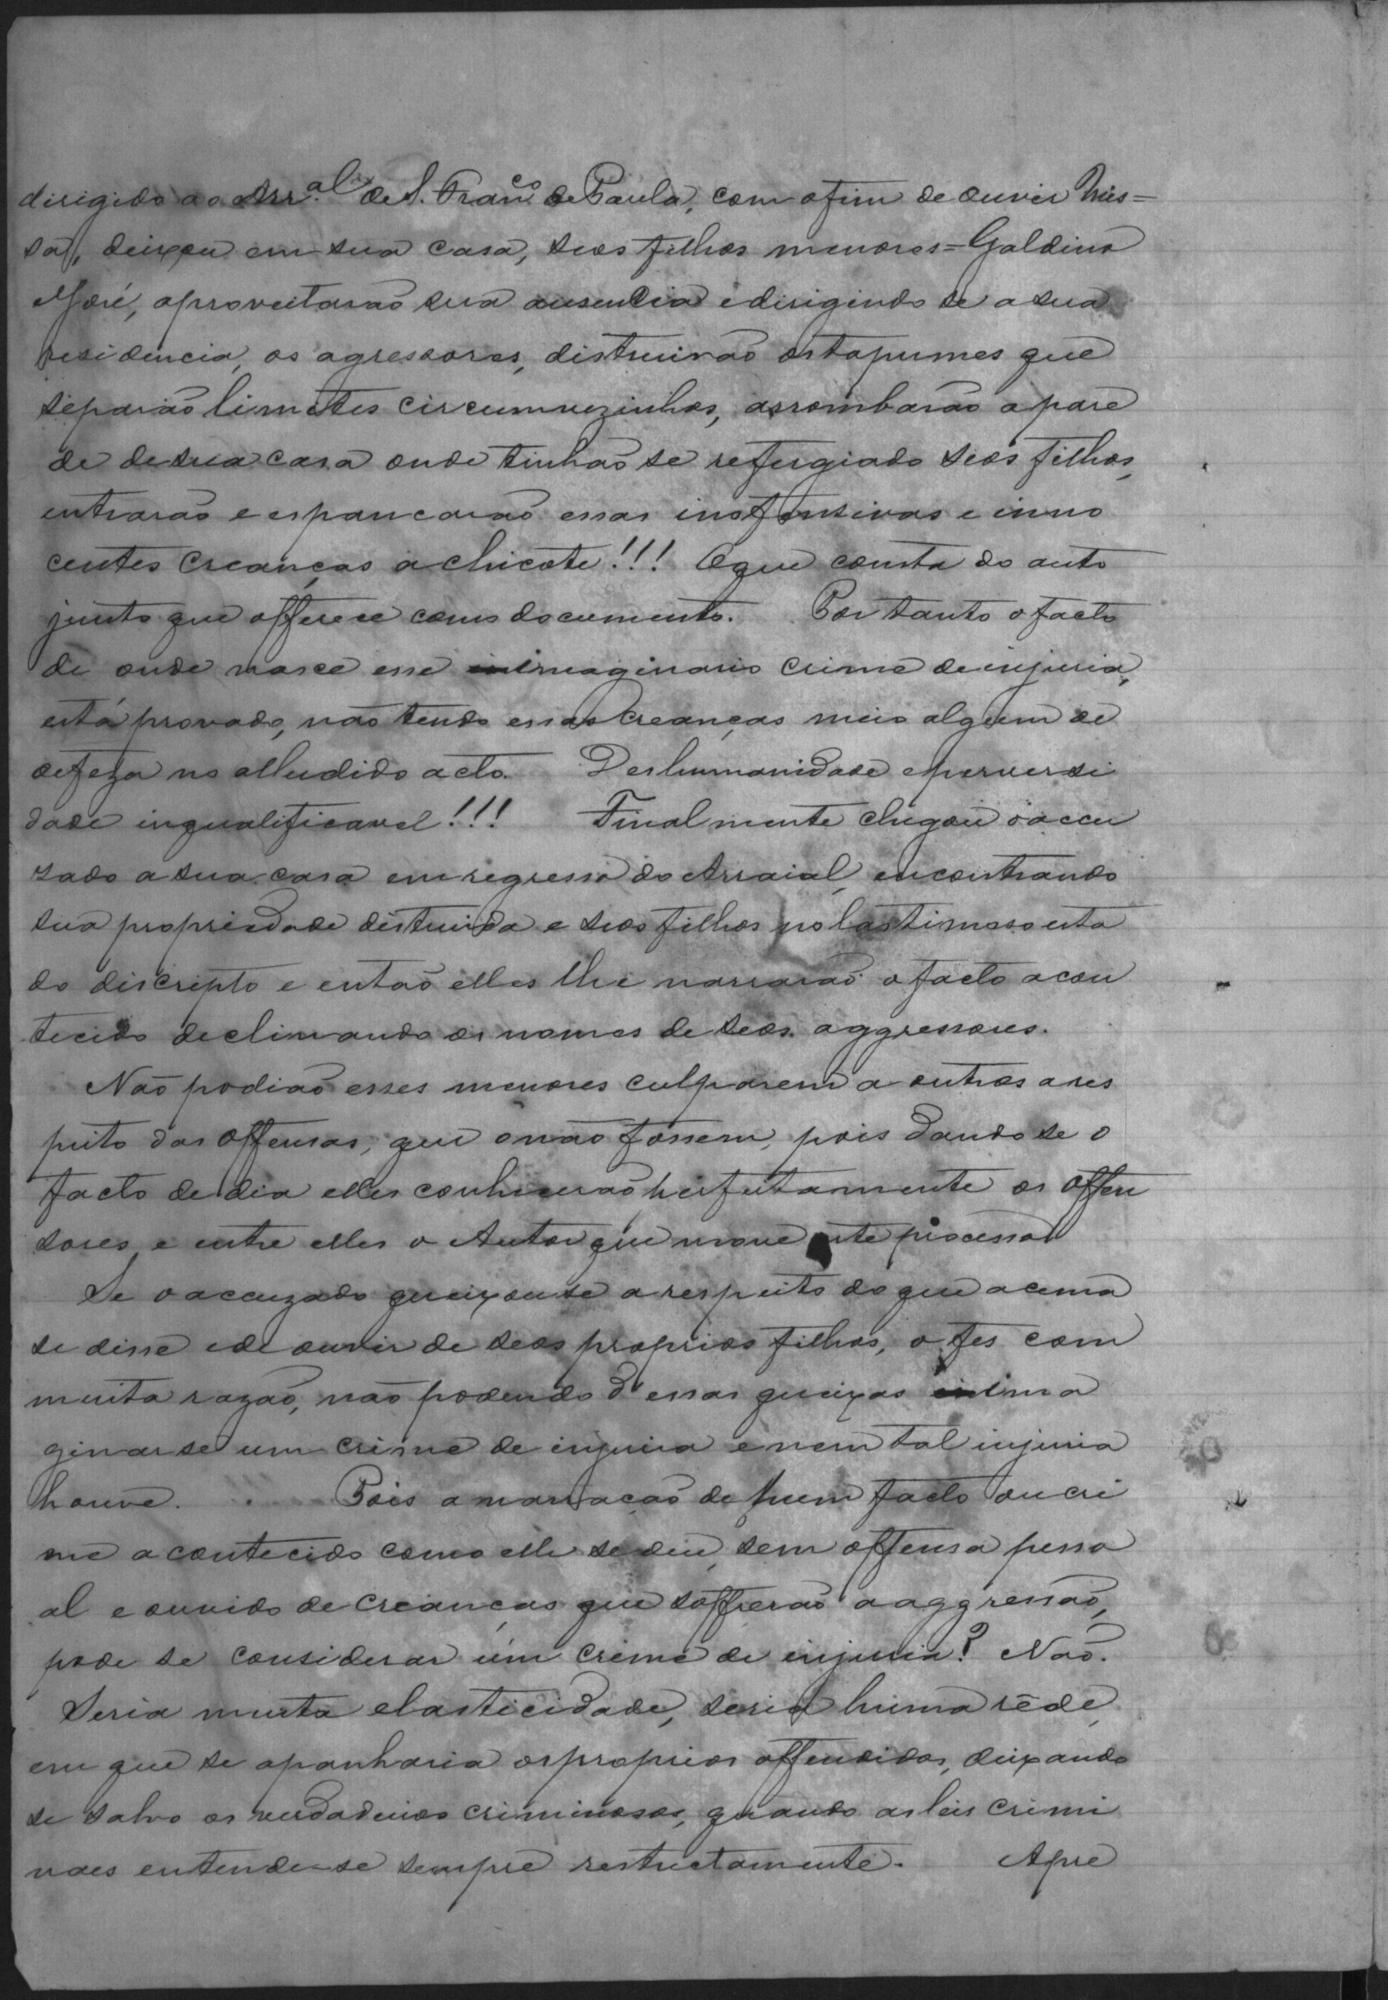 dirigido ao Arr.al de S. Fran.co de Paula, com o fim de ouvir Mis=
sa, deixou em sua casa, seos filhos menores = Galdino
e José, aproveitarão sua ausencia e dirigindo se a sua
residencia, os agressores, distruirão os tapumes que
separão limetes circumvezinhos, arrombarão a pare
de de sua casa onde tinhão se refugiado seos filhos,
entrarão e espancarão essas inoffensivas e inno
centes creanças a chicote!!! O que consta do auto
junto que offerece como documento. Por tanto o facto
de onde nasce esse imaginario crime de injuria,
está provado, não tendo essas creanças meio algum de
defeza no alludido acto. Deshumanidade e perversi
dade inqualificavel!!! Finalmente chegou o accu
zado a sua casa em regresso do Arraial, encontrando
sua propriedade distruida e seos filhos no lastimoso esta
do discripto e então elles lhe narrarão o facto acon
tecido declinando os nomes de seos aggressores.
Não podião esses menores culparem a outros a res
peito das offensas, que o não fossem, pois dando se o
facto de dia elles conhecerão perfeitamente os offen
sores, e entre elles o Autor que move este processo
Se o accuzado queixou se a respeito do que acema
se disse e de ouvir de seos proprios filhos, o fes com
muita razão, não podendo d'essas queixas ima
ginar se um crime de injuria e nem tal injuria
houve. Pois a narração de hum facto ou cri
me acontecido como elle se deu, sem offensa pesso
al e ouvido de creanças que soffrerão a aggressão,
pode se considerar um crime de injuria? Não.
Seria muita elasticidade, seria huma rêde,
em que se apanharia os proprios offendidos, deixando
se salvo os verdadeiros criminosos, quando as leis crimi
naes entende-se sempre restrictamente. Apre